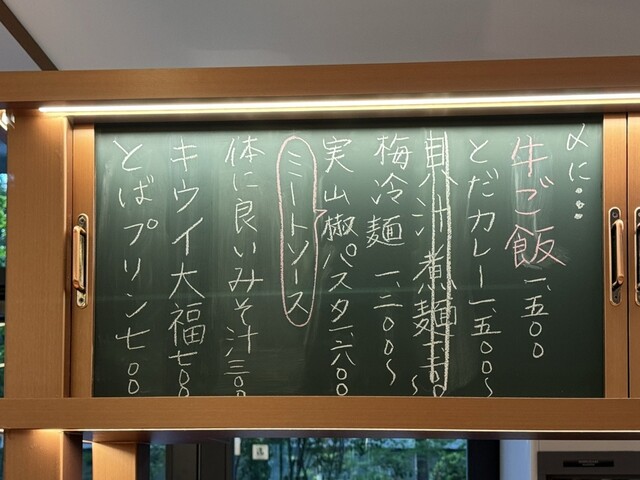 〆に…
牛ご飯 一、五〇〇
とだカレー 一、五〇〇〜
貝汁煮麺
梅冷麺 一、二〇〇〜
実山椒パスタ 一、六〇〇
ミートソース
体に良いみそ汁 三〇〇
キウイ大福 七〇〇
とばプリン 七〇〇